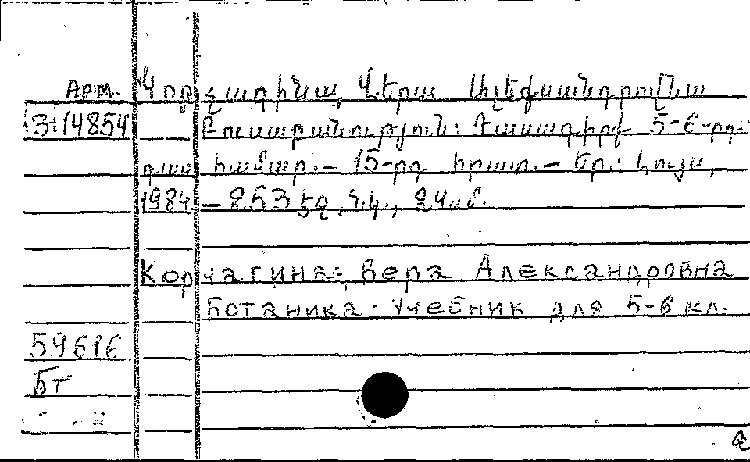 Арм. Կորչագինա, Վերա Ալեքսանդրովնա
3:14854 Բուսաբանություն: Դասագիրք 5-6-րդ
դաս համար. – 15-րդ հրատ. – Եր.: Լույս,
1984 – 253 էջ, նկ., 24սմ.
Корчагина. Вера Александровна
Ботаника. Учебник для 5-6 кл.
59616
Бт